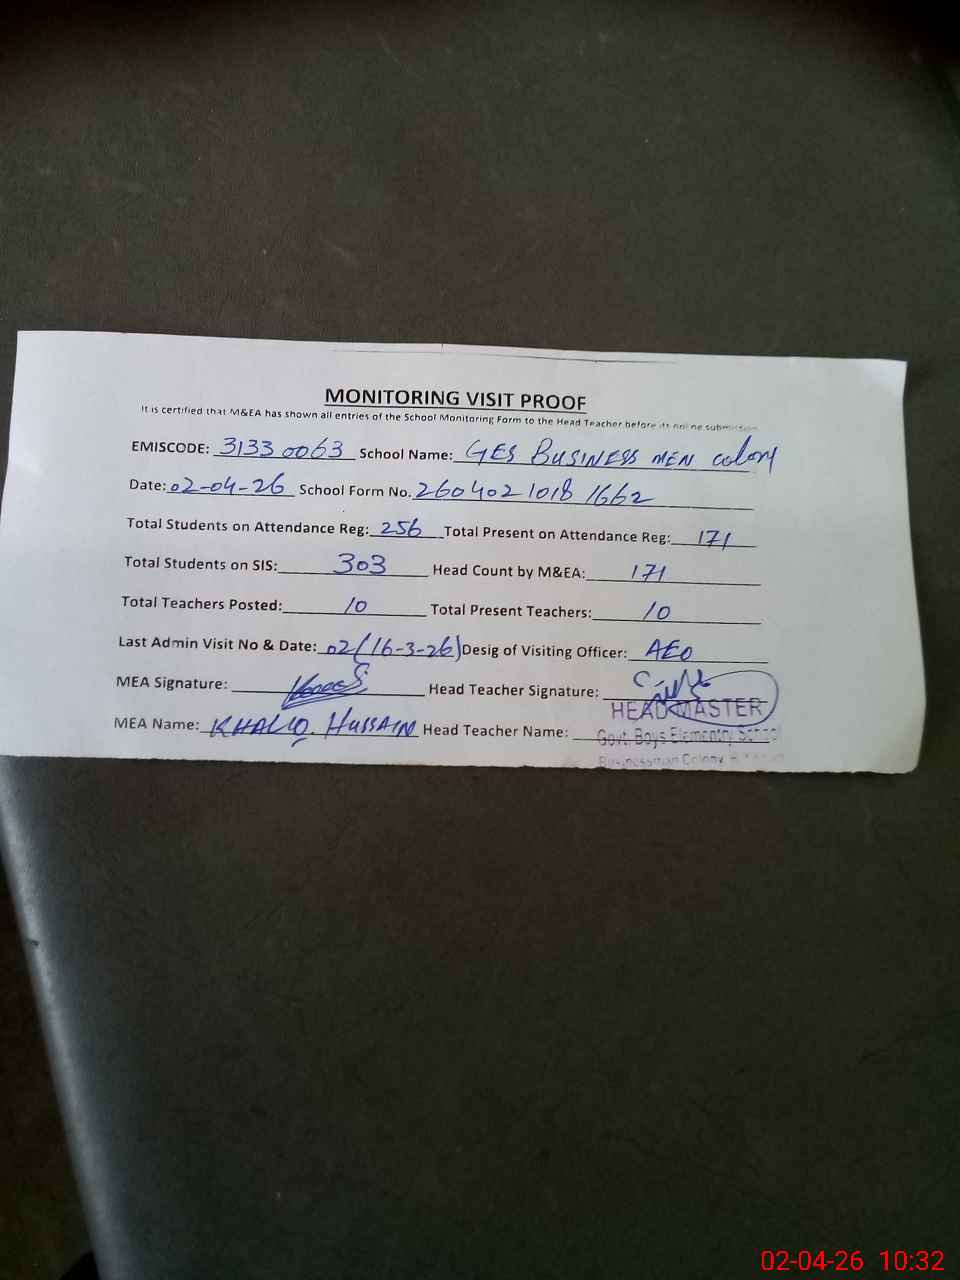 MONITORING VISIT PROOF
It is certified that M&EA has shown all entries of the School Monitoring Form to the Head Teacher before its online submission
EMISCODE: 31330063 School Name: GES BUSINESS MEN colony
Date: 02-04-26 School Form No. 2604021018 1662
Total Students on Attendance Reg: 256 Total Present on Attendance Reg: 171
Total Students on SIS: 303 Head Count by M&EA: 171
Total Teachers Posted: 10 Total Present Teachers: 10
Last Admin Visit No & Date: 02(16-3-26) Desig of Visiting Officer: AEO
MEA Signature: Head Teacher Signature:
HEAD MASTER
MEA Name: KHALIQ. HUSSAIN Head Teacher Name: Govt. Boys Elementry School
Businessman Colony
02-04-26 10:32